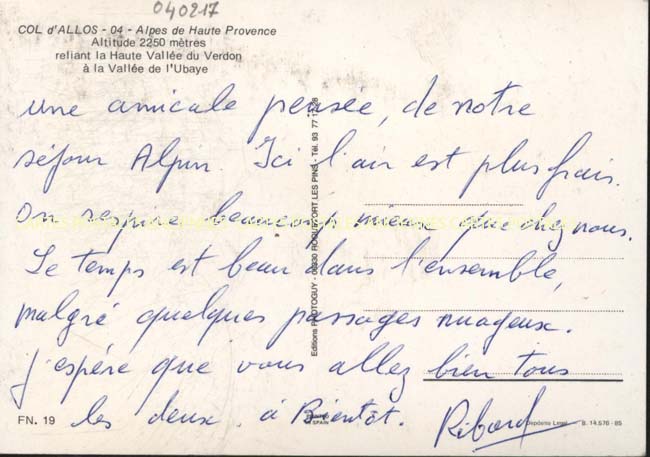 040217
COL d'ALLOS - 04 - Alpes de Haute Provence
Altitude 2250 mètres
reliant la Haute Vallée du Verdon
à la Vallée de l'Ubaye
une amicale pensée, de notre
séjour Alpin. Ici l'air est plus frais.
On respire beaucoup mieux que chez nous.
Le temps est beau dans l'ensemble,
malgré quelques passages nuageux.
j'espère que vous allez bien tous
les deux. à Bientôt. Ribard
Editions PHOTOGUY - 06330 ROQUEFORT LES PINS - Tél. 93 77
FN. 19
SPAIN
Depósito Legal B. 14.576 - 85